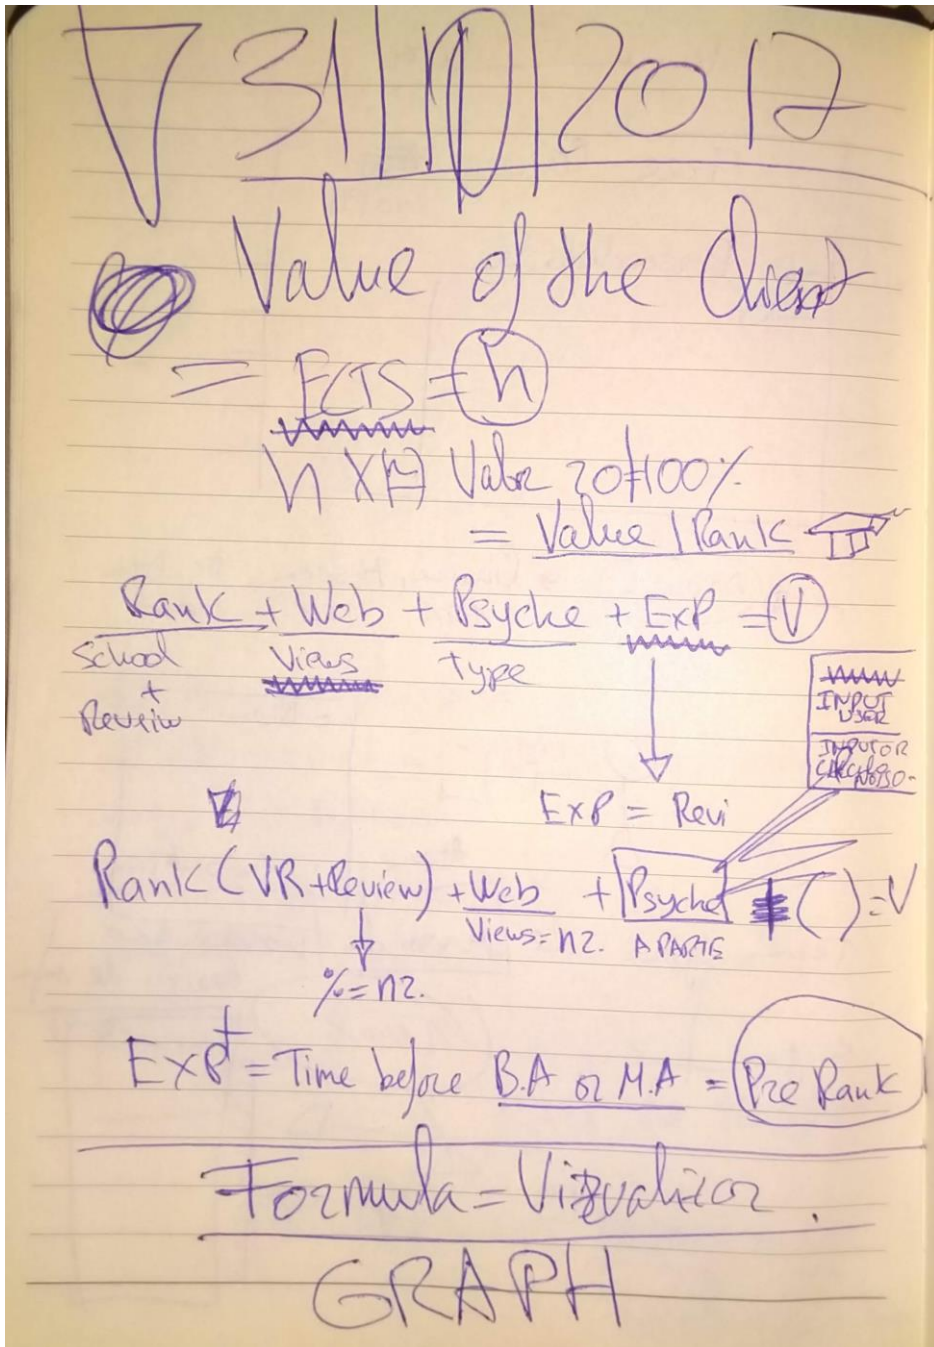 31/10/2017
Value of the Client
= ECTS = h
= Value / Rank
Rank + Web + Psyche + Exp = V
School Views Type
+
Review
INPUT
USER
INPUT OR
Exp = Revi
Rank (VR + Review) + Web + Psyche ( ) = V
Views = nr. APARTE
% = nr.
Exp+ = Time before B.A or M.A = Pre Rank
Formula = Vizualizor.
GRAPH